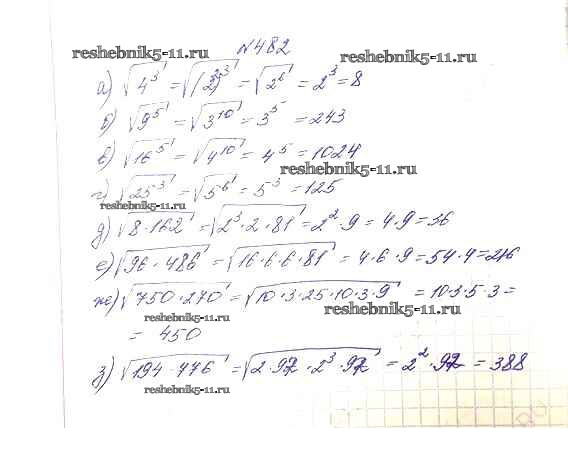 reshebnik5-11.ru
№482
reshebnik5-11.ru
а) √4³ = √(2²)³ = √2⁶ = 2³ = 8
б) √9⁵ = √3¹⁰ = 3⁵ = 243
в) √16⁵ = √4¹⁰ = 4⁵ = 1024
reshebnik5-11.ru
г) √25³ = √5⁶ = 5³ = 125
reshebnik5-11.ru
д) √8·162 = √2³·2·81 = 2²·9 = 4·9 = 36
е) √96·486 = √16·6·6·81 = 4·6·9 = 54·4 = 216
ж) √750·270 = √10·3·25·10·3·9 = 10·3·5·3 =
reshebnik5-11.ru
reshebnik5-11.ru
= 450
з) √194·776 = √2·97·2³·97 = 2²·97 = 388
reshebnik5-11.ru